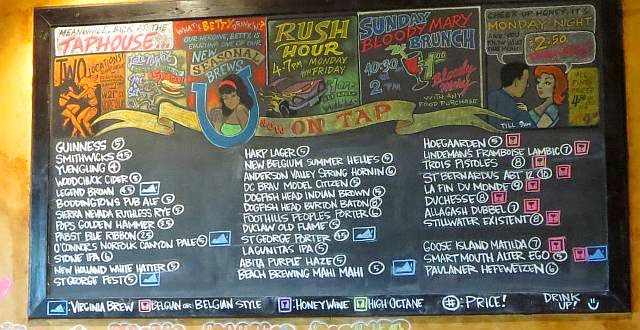 MEANWHILE, BACK AT THE
TAPHOUSE...
TWO
LOCATIONS!
WHAT'S BETTY DRINKIN'?
OUR HEROINE, BETTY, IS
ENJOYING ONE OF OUR
NEW
SEASONAL
BREWS
RUSH
HOUR
4-7PM MONDAY
FRIDAY
SUNDAY
BLOODY MARY
BRUNCH
10:30
2 PM
Bloody
Mary
WITH ANY
FOOD PURCHASE
MONDAY NIGHT
$2.50
TILL 9PM
NOW ON TAP
GUINNESS 5
SMITHWICKS 4.5
YUENGLING 4
WOODCHUCK CIDER 5
LEGEND BROWN 4.5
BODDINGTONS PUB ALE 5
SIERRA NEVADA RUTHLESS RYE 5
FDPS GOLDEN HAMMER 2.5
PABST BLUE RIBBON 2.5
O'CONNORS NORFOLK CANYON PALE 5
STONE IPA 6
NEW HOLLAND WHITE HATTER 5
ST GEORGE FEST 5
HARP LAGER 5
NEW BELGIUM SUMMER HELLES 5
ANDERSON VALLEY SPRING HORNIN 6
DC BRAU MODEL CITIZEN 5
DOGFISH HEAD INDIAN BROWN 5
DOGFISH HEAD BURTON BATON 8
FOOTHILLS PEOPLES PORTER 6
DUCLAW OLD FLAME 5
ST GEORGE PORTER 4.5
LAGUNITAS IPA 5
ABITA PURPLE HAZE 5
BEACH BREWING MAHI MAHI 5
HOEGAARDEN 5
LINDEMANS FRAMBOISE LAMBIC 7
TROIS PISTOLES 8
ST BERNARDUS ABT 12 10
LA FIN DU MONDE 9
DUCHESSE 8
ALLAGASH DUBBEL 7
STILLWATER EXISTENT 8
GOOSE ISLAND MATILDA 7
SMART MOUTH ALTER EGO 5
PAULANER HEFEWEIZEN 6
: VIRGINIA BREW
: BELGIAN OR BELGIAN STYLE
: HONEYWINE
: HIGH OCTANE
#: PRICE!
DRINK
UP!